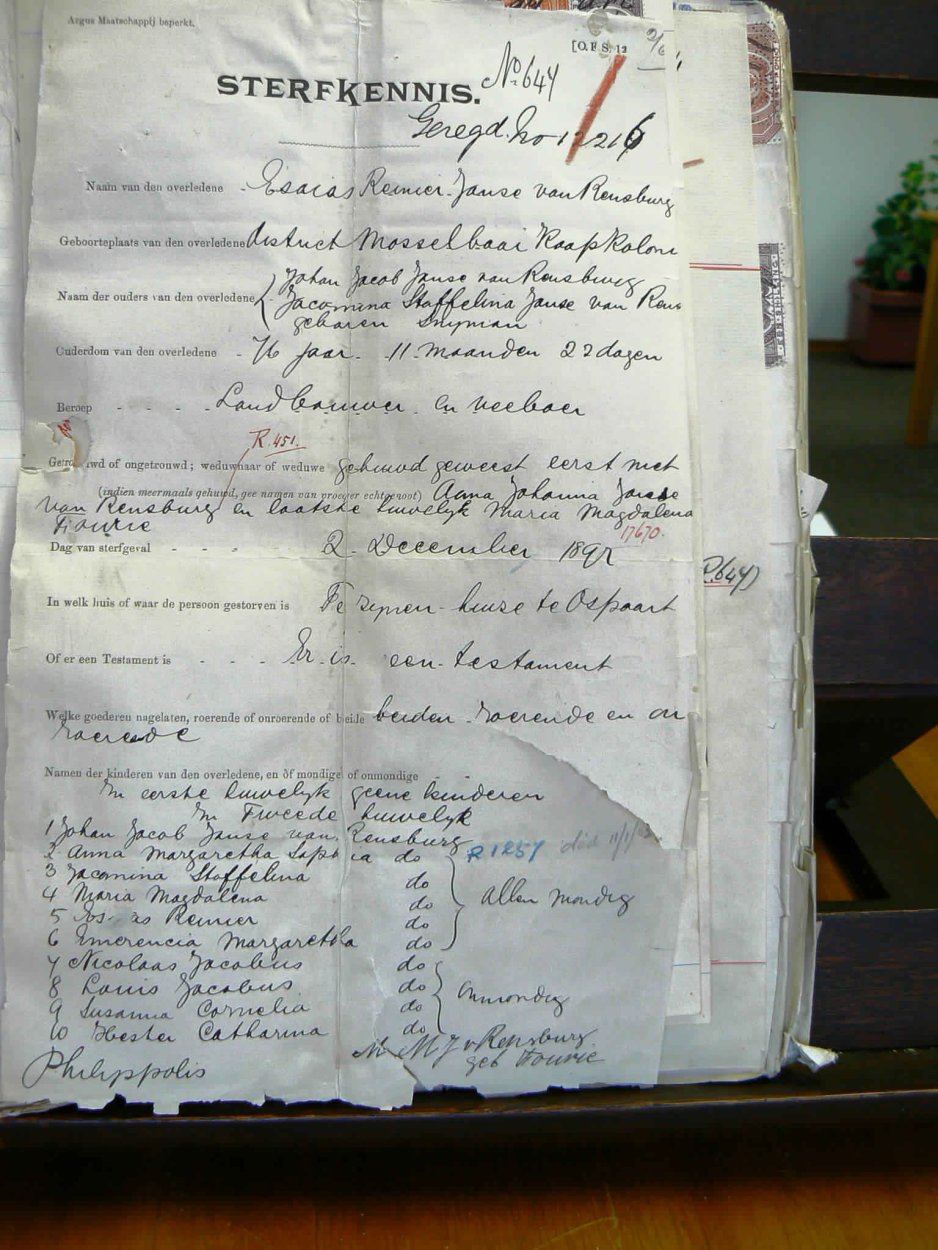 Argus Maatschappij beperkt.
[O.F.S. 12
STERFKENNIS. No. 647
Geregd. No 12216
Naam van den overledene - Esaias Reinier Janse van Rensburg
Geboorteplaats van den overledene district Mosselbaai Kaap Koloni
Naam der ouders van den overledene { Johan Jacob Janse van Rensburg
Jacomina Stoffelina Janse van Rens
geboren Snyman
Ouderdom van den overledene - 76 jaar - 11 maanden 22 dagen
Beroep - - - - Landbouwer en veeboer
R.451.
Getrouwd of ongetrouwd; weduwnaar of weduwe gehuwd geweest eerst met
(indien meermaals gehuwd, gee namen van vroeger echtgenoot) Anna Johanna Janse
van Rensburg en laatste huwelyk Maria Magdalena
Fourie
17670.
Dag van sterfgeval - - - - 2 December 189
R.647)
In welk huis of waar de persoon gestorven is Te zynen huize te Ospoort
Of er een Testament is - - - - Er is een testament
Welke goederen nagelaten, roerende of onroerende of beide beiden - roerende en on
roerende
Namen der kinderen van den overledene, en òf mondige of onmondige
In eerste huwelyk geene kinderen
In Tweede huwelyk
1 Johan Jacob Janse van Rensburg
2 Anna Margaretha Sop ia do R1257 died
3 Jacomina Stoffelina do
4 Maria Magdalena do Allen mondig
5 Es as Reinier do
6 Emerencia Margaretha do
7 Nicolaas Jacobus do
8 Louis Jacobus do onmondig
9 Susanna Cornelia do
10 Hester Catharina do
M M J v Rensburg
geb Fourie
Philippolis